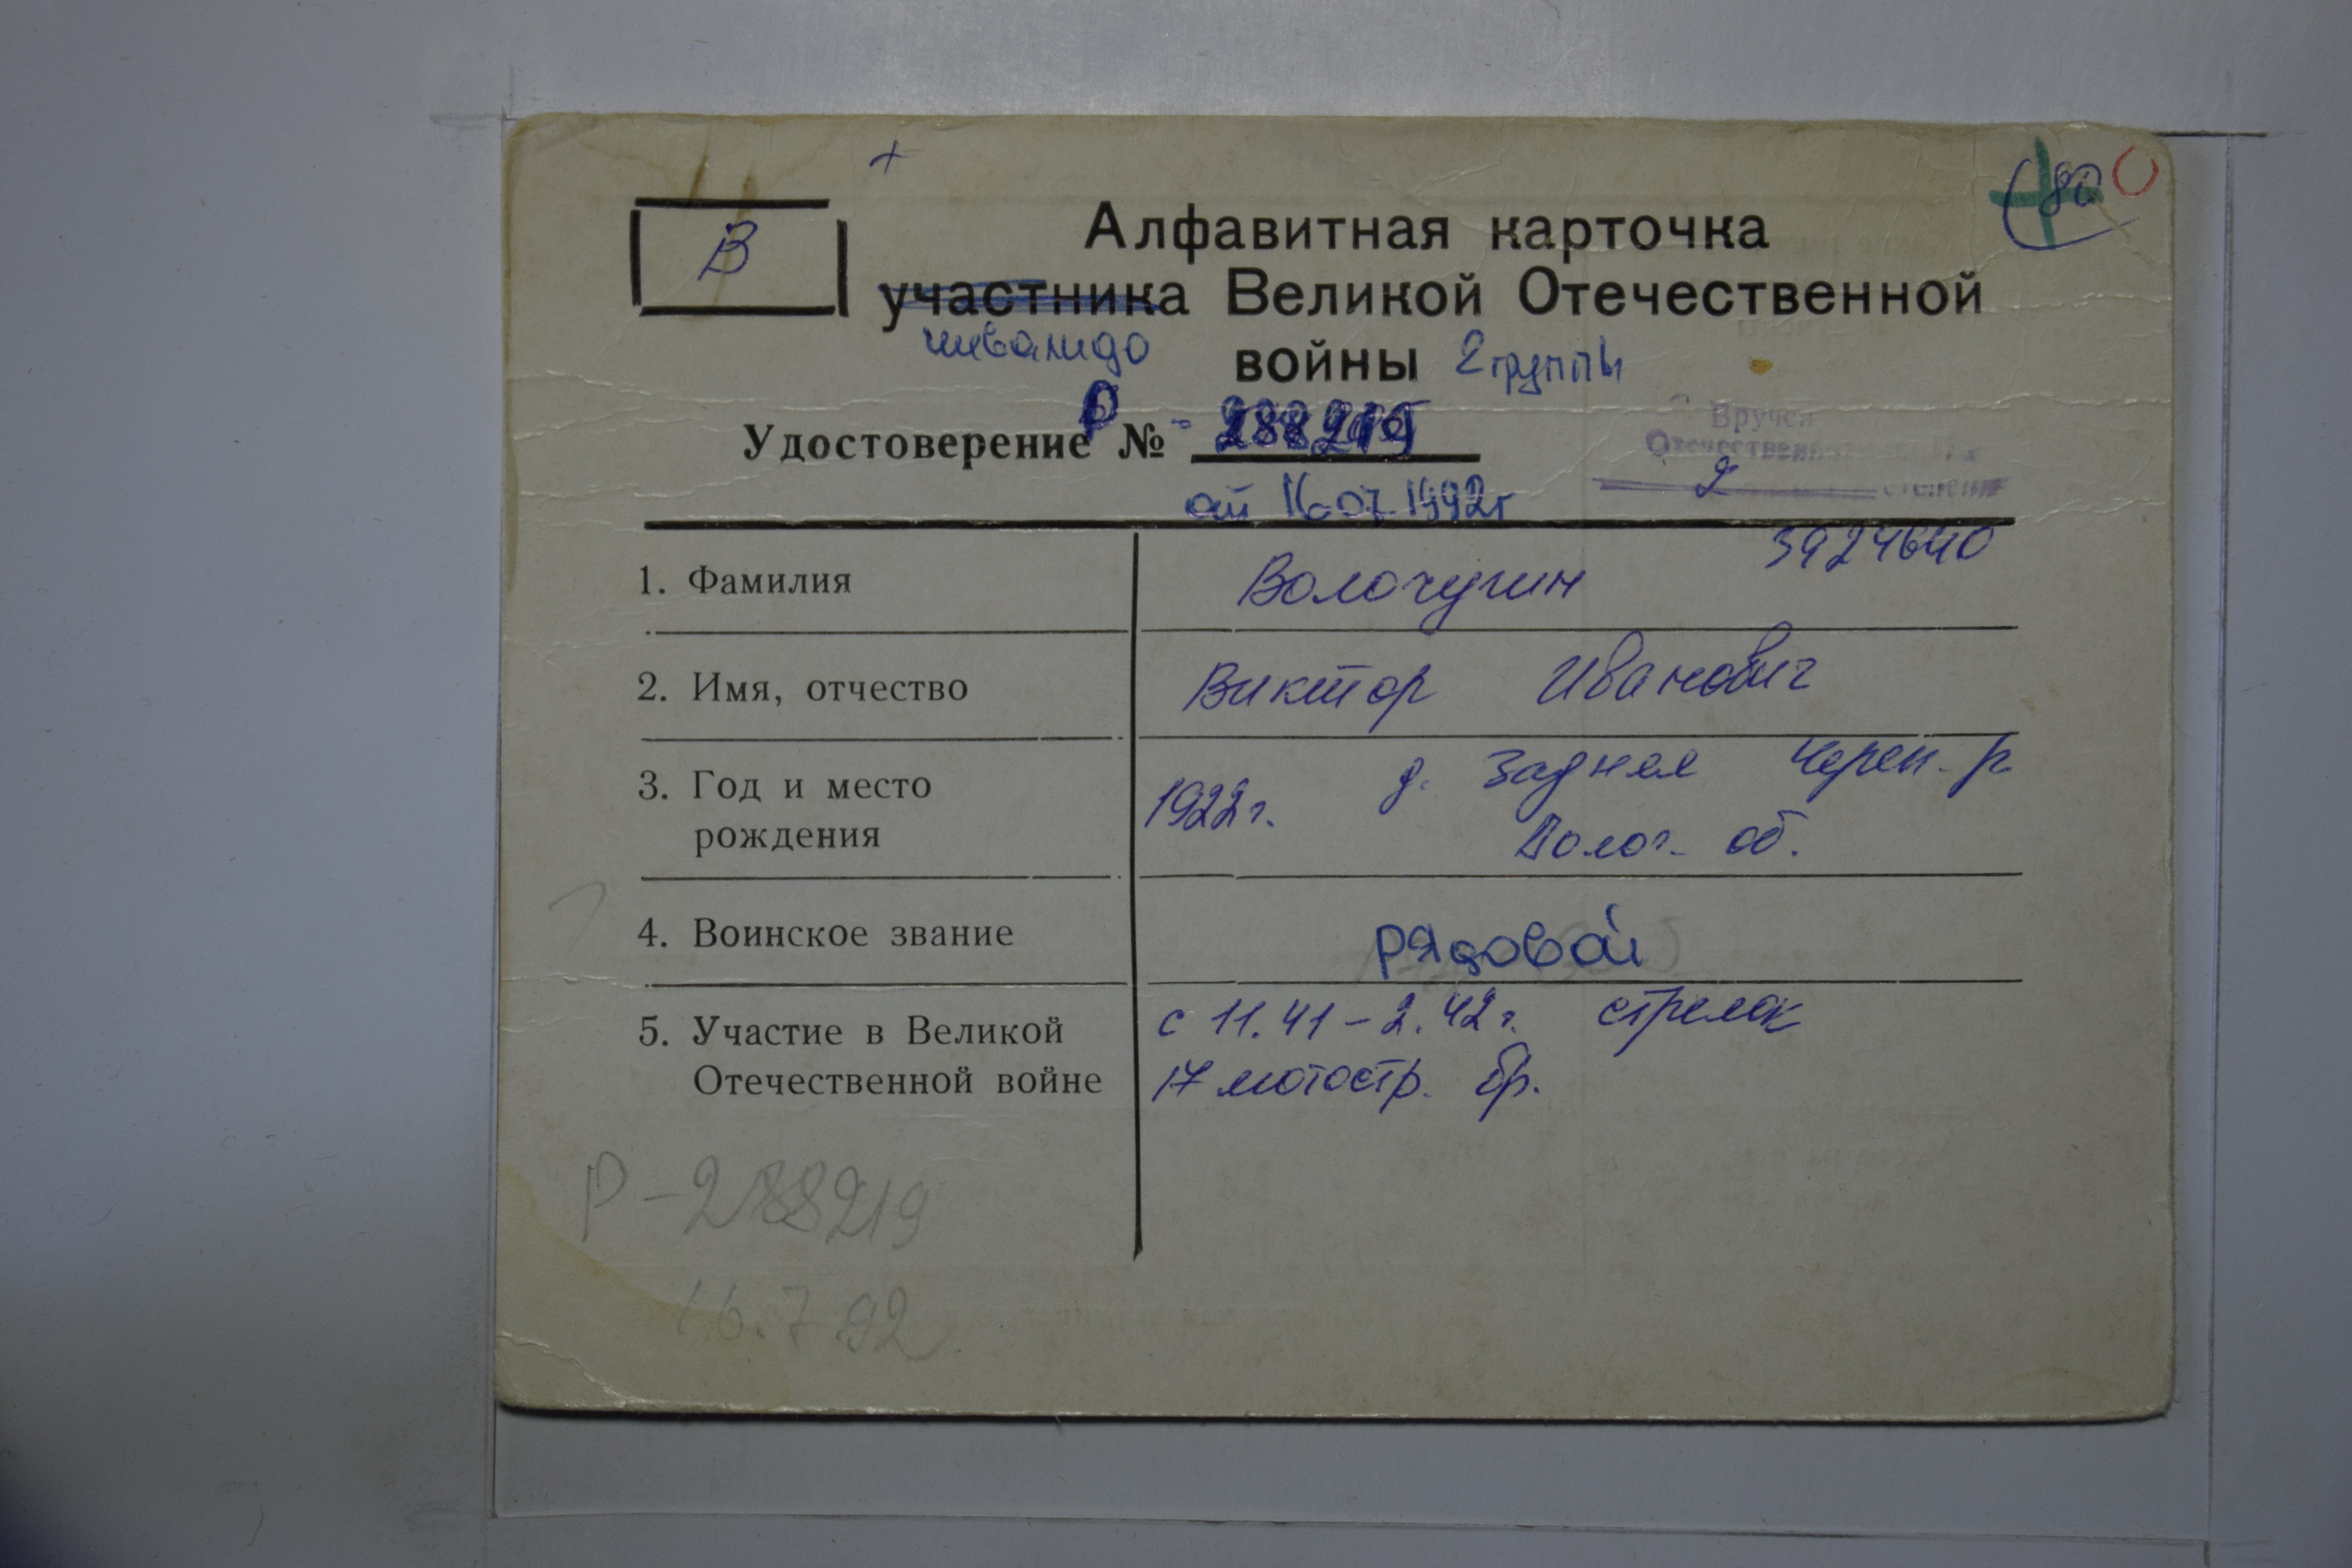 +
80 0
В
Алфавитная карточка
участника Великой Отечественной
инвалида войны 2 группы
Удостоверение Р № - 288219
от 16.07.1992г
Вручен
Отечественной
2 степени
3924640
1. Фамилия Волочугин
2. Имя, отчество Виктор Иванович
3. Год и место рождения 1922г. д. Задняя Череп. р
Волог. об.
4. Воинское звание рядовой
5. Участие в Великой с 11.41 – 2.42 г. стрелок
Отечественной войне 17 мотостр. бр.
Р-288219
16.7.92